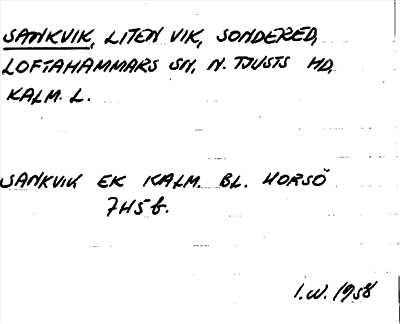 SANKVIK, LITEN VIK, SONDERED,
LOFTAHAMMARS SN, N. TJUSTS HD,
KALM. L.
SANKVIK EK KALM. BL. HORSÖ
7H5f.
I.W. 1958